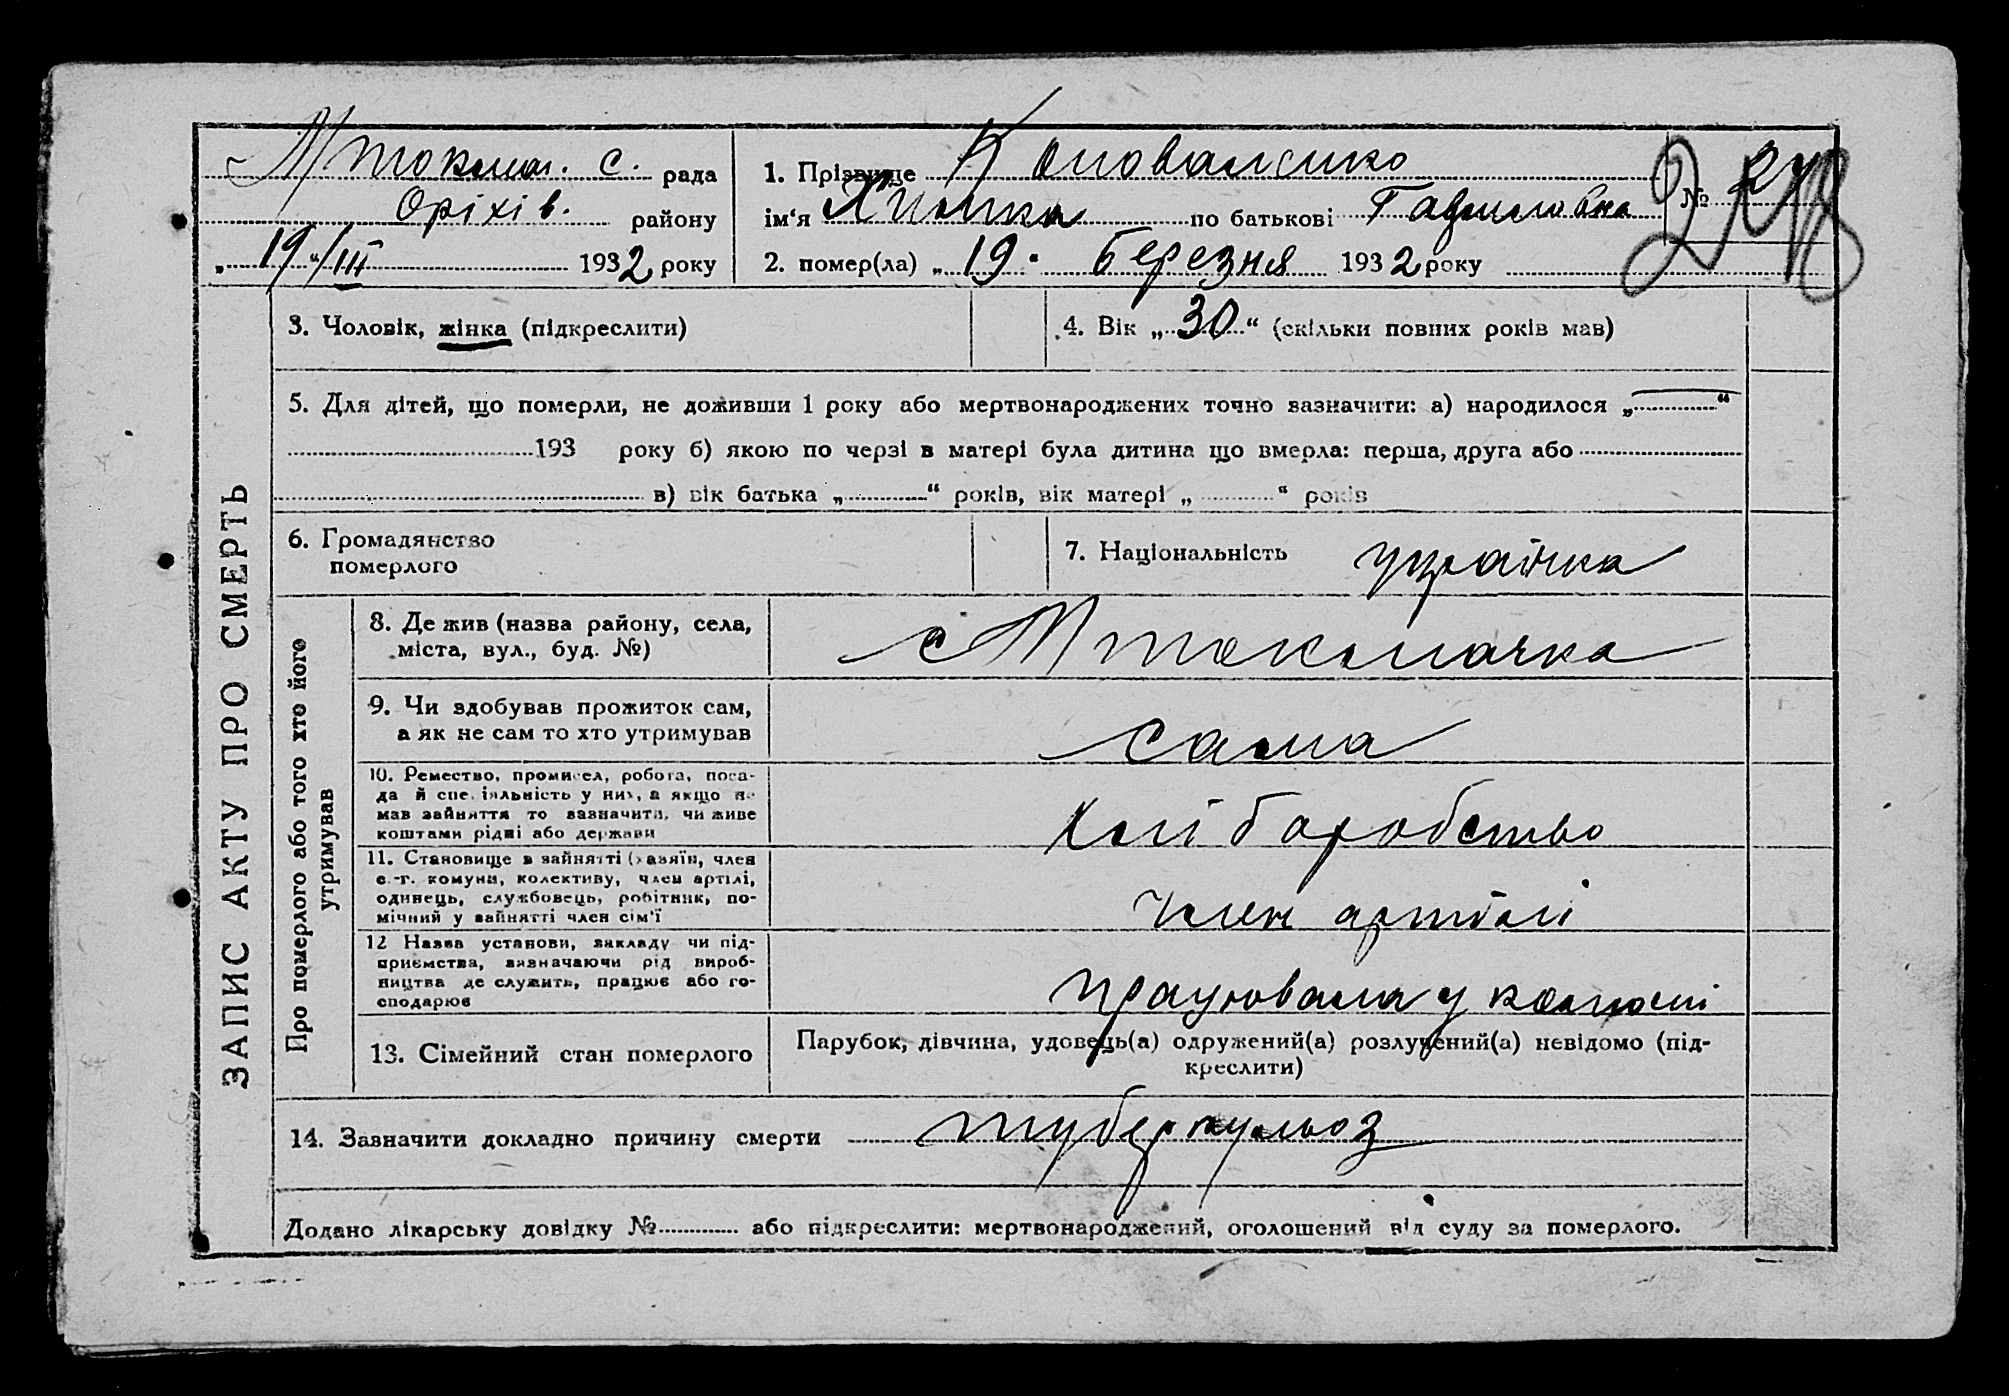 М токмач. с. рада
Оріхів. району
„19“/III 1932 року
1. Прізвище Коноваленко
ім‘я по батькові Гавриловна
№
2. помер(ла) „19“ березня 1932 року
3. Чоловік, жінка (підкреслити)
4. Вік „30“ (скільки повних років мав)
5. Для дітей, що померли, не доживши 1 року або мертвонароджених точно зазначити: а) народилося „ “
193 року б) якою по черзі в матері була дитина що вмерла: перша, друга або
в) вік батька „ “ років, вік матері „ “ років
6. Громадянство
померлого
7. Національність українка
ЗАПИС АКТУ ПРО СМЕРТЬ
Про померлого або того хто його
утримував
8. Де жив (назва району, села,
міста, вул., буд. №)
с М токмачка
9. Чи здобував прожиток сам,
а як не сам то хто утримував
сама
10. Ремество, промисел, робота, поса-
да й спеціяльність у них, а якщо не
мав зайняття то зазначити, чи живе
коштами рідні або держави
хліборобство
11. Становище в зайнятті (хазяїн, член
с.-г. комуни, колективу, член артілі,
одинець, службовець, робітник, по-
мічний у зайнятті член сім'ї
член артілі
12 Назва установи, закладу чи під-
приємства, зазначаючи рід вироб-
ництва де служить, працює або го-
сподарює
працювала у колгоспі
13. Сімейний стан померлого
Парубок, дівчина, удовець(а) одружений(а) розлучений(а) невідомо (під-
креслити)
14. Зазначити докладно причину смерти туберкульоз
Додано лікарську довідку № або підкреслити: мертвонароджений, оголошений від суду за померлого.